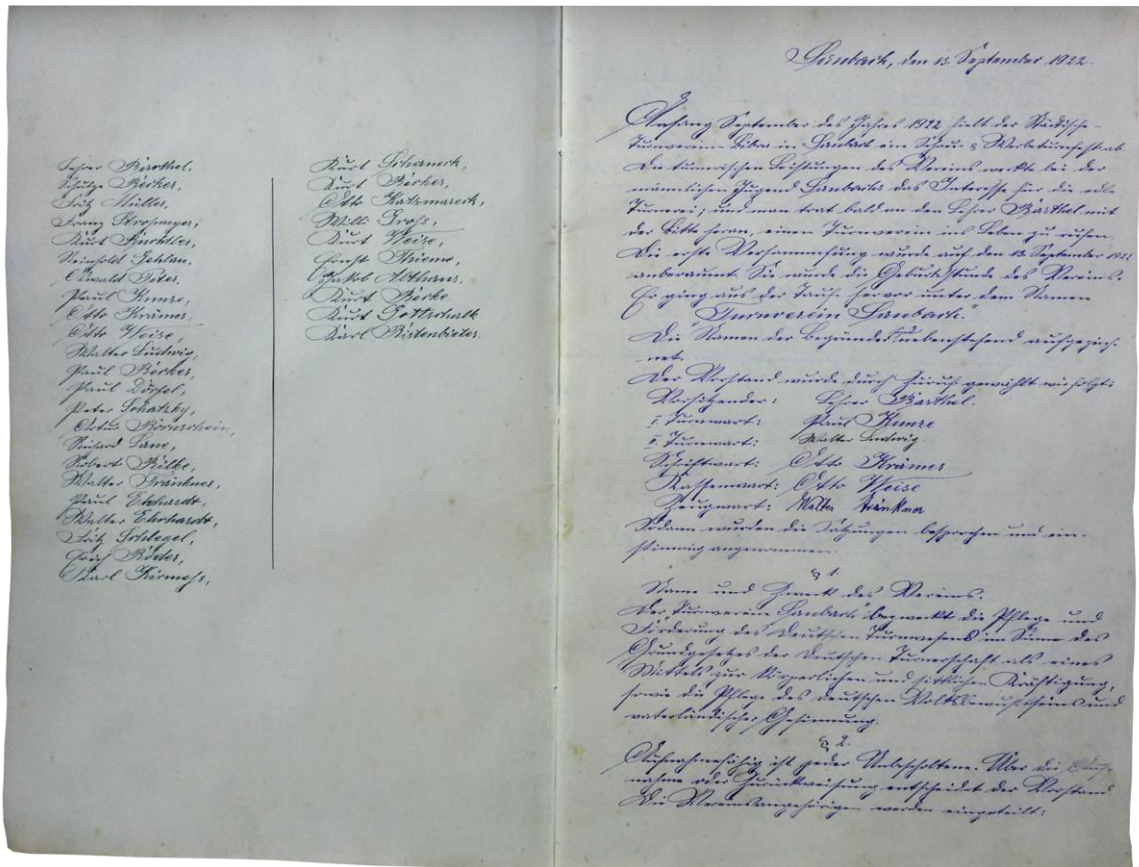 Lehrer Barthel.
Schütze Becker,
Fritz Müller,
Franz Strohmeyer,
Kurt Buchtler,
Reinhold Gehlau,
Oswald Peter,
Paul Kunze,
Otto Krämer,
Otto Weise,
Walter Ludwig,
Paul Becker,
Paul Döpfel,
Peter Schatzky,
Artur Bornschein,
Richard Lane,
Robert Bilke,
Walter Tränkner,
Paul Ehrhardt,
Walter Ehrhardt,
Fritz Schlegel,
Erich Röder,
Karl Kirmeß,
Kurt Schaneck,
Kurt Becker,
Otto Katzmareck,
Willi Groß,
Kurt Weise,
Ernst Thieme,
Jakob Althans,
Kurt Becke
Kurt Gottschalk
Karl Bistenbieter.
Saubach, den 13. September 1922.
Anfang September des Jahres 1922 hielt der Städtische-
Turnverein Bibra in Saubach ein Schau- & Werbeturnfest ab.
Die turnerischen Leistungen des Vereins weckte bei der
männlichen Jugend Saubachs das Interesse für die edle
Turnerei; und man trat bald an den Lehrer Barthel mit
der Bitte heran, einen Turnverein ins Leben zu rufen.
Die erste Versammlung wurde auf den 13. September 1922
anberaumt. Sie wurde die Geburtsstunde des Vereins.
Er ging aus der Taufe hervor unter dem Namen
"Turnverein Saubach."
Die Namen der Begründer nebenstehend aufgezeich-
net.
Der Vorstand wurde durch Zuruf gewählt wie folgt:
Vorsitzender: Lehrer Barthel.
I. Turnwart: Paul Kunze
II. Turnwart: Walter Ludwig.
Schriftwart: Otto Krämer
Kassenwart: Otto Weise
Zeugwart: Walter Tränkner
Sodann wurden die Satzungen besprochen und ein-
stimmig angenommen.
§ 1.
Name und Zweck des Vereins.
Der "Turnverein Saubach" bezweckt die Pflege und
Förderung des Deutschen Turnwesens im Sinne des
Grundgesetzes der Deutschen Turnerschaft als eines
Mittels zur körperlichen und sittlichen Kräftigung,
sowie die Pflege des deutschen Volksbewußtseins und
vaterländischer Gesinnung.
§ 2.
Aufnahmefähig ist jeder Unbescholtene. Über die Auf-
nahme oder Zurückweisung entscheidet der Vorstand
Die Vereinsangehörigen werden eingeteilt: